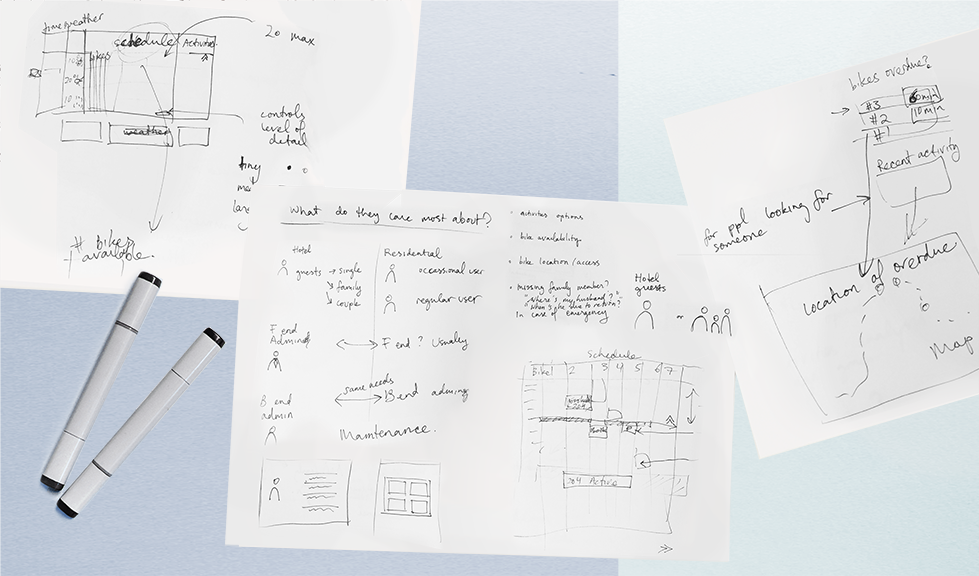 time
weather
schedule
Activities
bikes
weather
20 max
controls
level of
detail
tiny
# Bikes
available.
What do they care most about?
Hotel
guests → single
family
couple
Residential
occassional user
regular user
F end
Admin
F end ? Usually
same needs
B end
admin
B end
Maintenance.
• activities options
• bike availability
• bike location/access
• Missing family member?
"Where's my husband?"
"When's he due to return?"
In case of emergency
Hotel
guests
Schedule
Bike 1 2 3 4 5 6 7
bikes overdue?
#3 60min
#2 10min
#1
Recent activity
for ppl looking for
someone
Location of overdue
Map